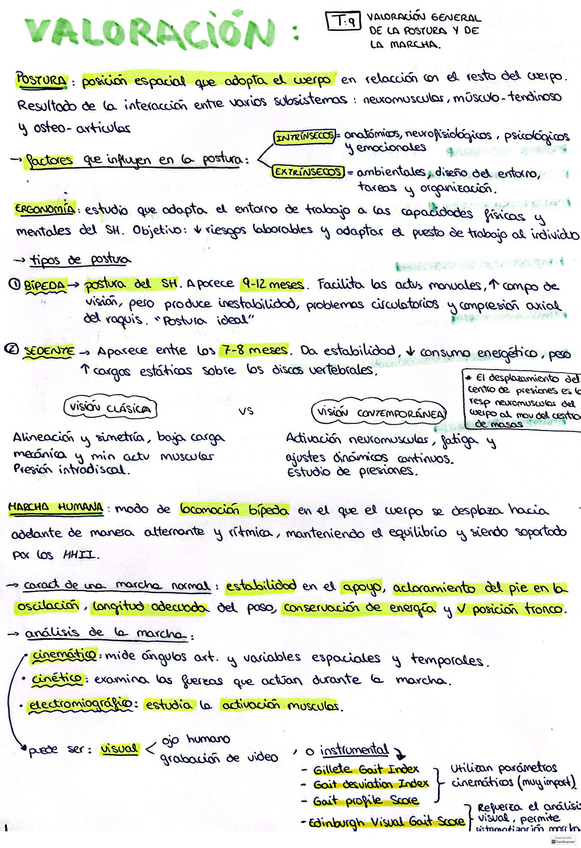 VALORACIÓN:
T:9 VALORACIÓN GENERAL
DE LA POSTURA Y DE
LA MARCHA.
POSTURA: posición espacial que adopta el cuerpo en relación con el resto del cuerpo.
Resultado de la interacción entre varios subsistemas: neuromuscular, músculo-tendinoso
y osteo-articular
→ factores que influyen en la postura:
INTRÍNSECOS = anatómicos, neurofisiológicos, psicológicos
y emocionales
EXTRÍNSECOS = ambientales, diseño del entorno,
tareas y organización.
ERGONOMÍA: estudio que adapta el entorno de trabajo a las capacidades físicas y
mentales del SH. Objetivo: ↓ riesgos laborables y adaptar el puesto de trabajo al individuo
→ tipos de postura
① BÍPEDA → postura del SH. Aparece 9-12 meses. Facilita las actvs manuales, ↑ campo de
visión, pero produce inestabilidad, problemas circulatorios y compresión axial
del raquis. "Postura ideal"
② SEDENTE → Aparece entre los 7-8 meses. Da estabilidad, ↓ consumo energético, pero
↑ cargas estáticas sobre los discos vertebrales.
* El desplazamiento del
centro de presiones es la
resp neuromuscular del
cuerpo al mov del centro
de masas
VISIÓN CLÁSICA vs VISIÓN CONTEMPORÁNEA
Alineación y simetría, baja carga
mecánica y min actv muscular
Presión intradiscal.
Activación neuromuscular, fatiga y
ajustes dinámicos continuos.
Estudio de presiones.
MARCHA HUMANA: modo de locomoción bípeda en el que el cuerpo se desplaza hacia
adelante de manera alternante y rítmica, manteniendo el equilibrio y siendo soportado
por los HHII.
→ caract de una marcha normal: estabilidad en el apoyo, acloramiento del pie en la
oscilación, longitud adecuada del paso, conservación de energía y V posición tronco.
→ análisis de la marcha:
· cinemático: mide ángulos art. y variables espaciales y temporales.
· cinético: examina las fuerzas que actúan durante la marcha.
· electromiográfico: estudia la activación muscular.
puede ser: visual < ojo humano
grabación de video
, o instrumental
- Gillete Gait Index
- Gait desviation Index
- Gait profile Score
Utilizan parámetros
cinemáticos (muy import)
- Edinburgh Visual Gait Score
Refuerza el análisis
visual, permite
CamScanner